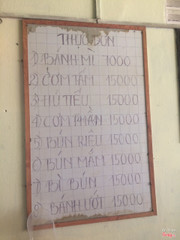 THỰC ĐƠN
① BÁNH MÌ 7000
② CƠM TẤM 15000
③ HỦ TIẾU 15000
④ CƠM PHẦN 15000
⑤ BÚN RIÊU 15000
⑥ BÚN MẮM 15000
⑦ BÌ BÚN 15000
⑧ BÁNH ƯỚT 15000